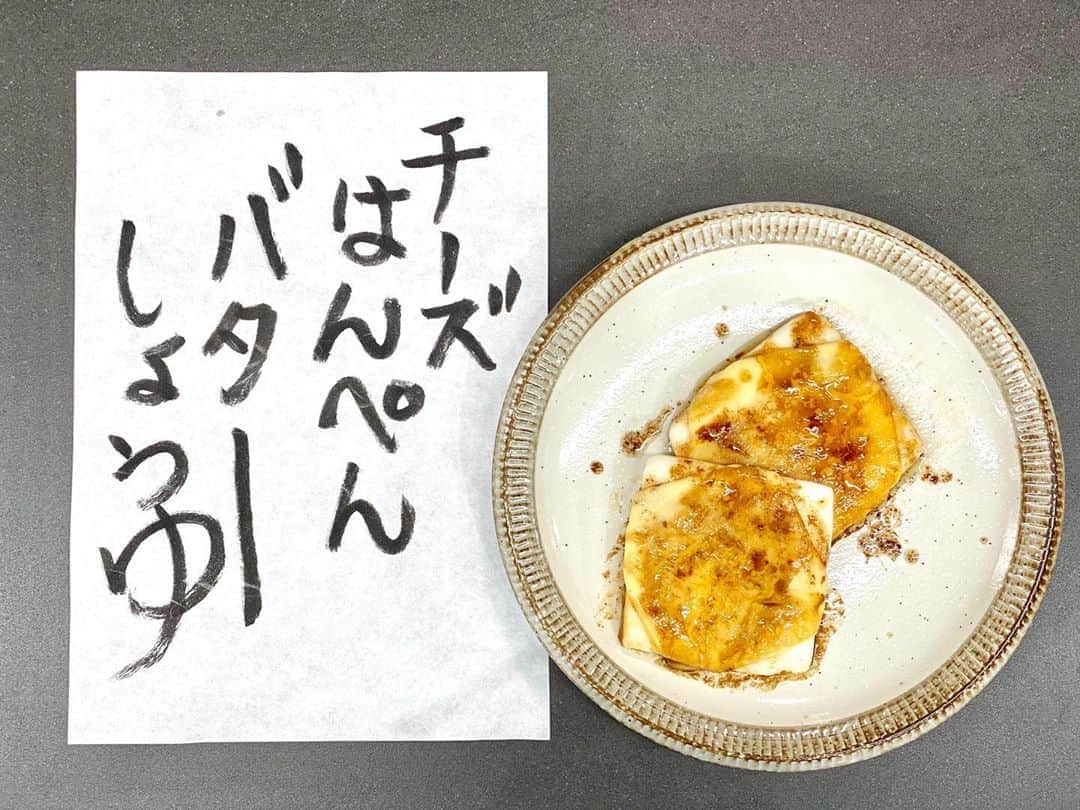 チーズ
はんぺん
バター
しょうゆ